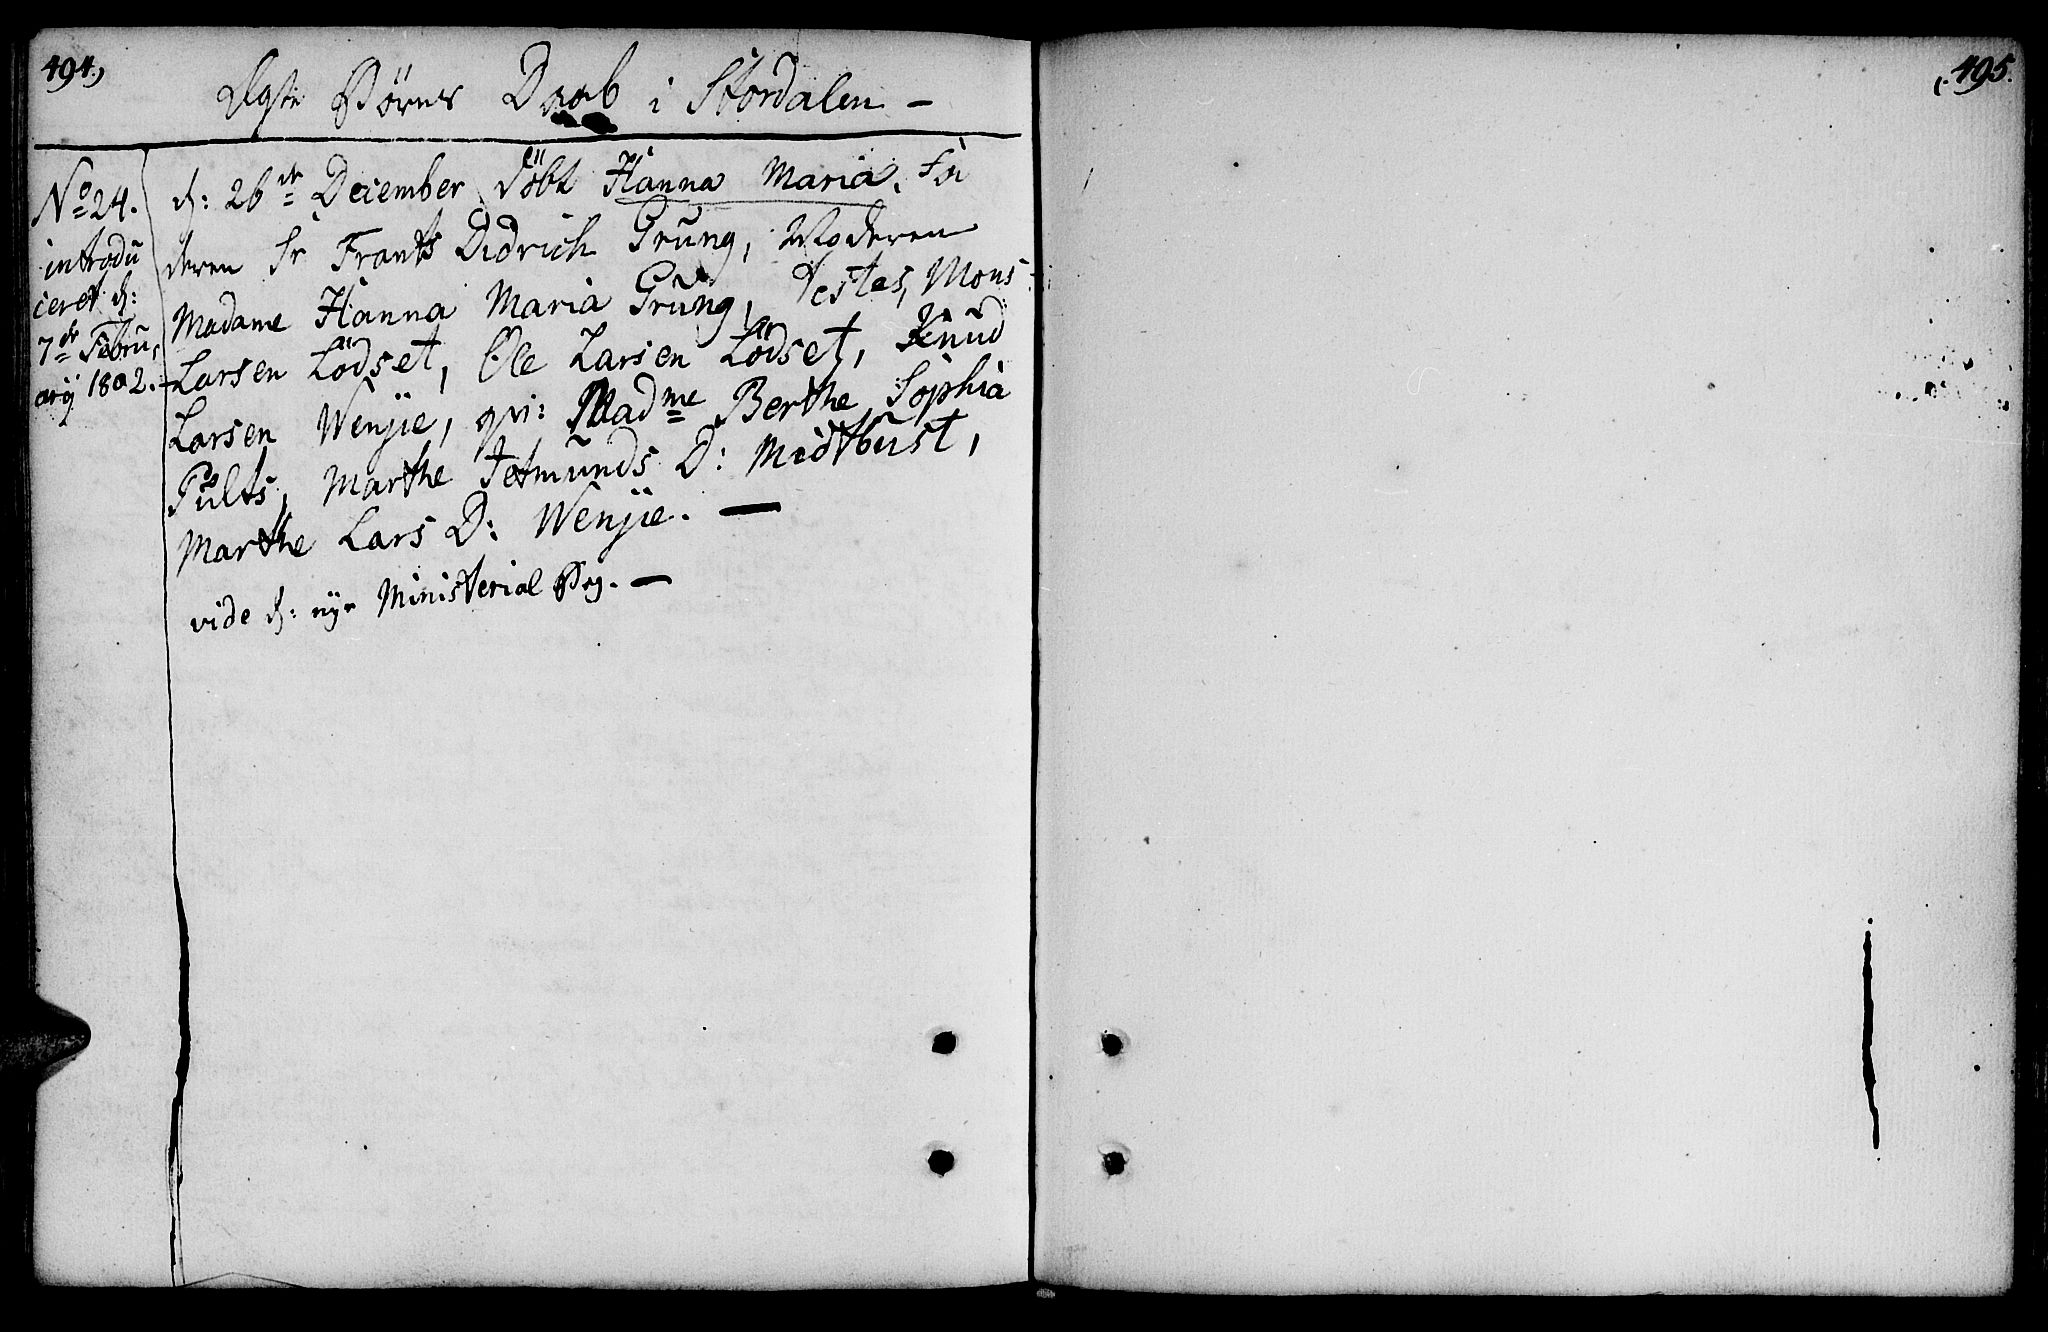 494.)
Ægte Børns Daab i Stordalen –
No 24.
introdu
ceret d:
7de Febru,
arij 1802.
d: 26de December döbt Hanna Maria. Fa
deren Sr Frants Didrich Grung, Moderen
Madame Hanna Maria Grung, Testes, Mons
Larsen Lödset, Ole Larsen Lödset, Knud
Larsen Wenjie, qvi: Madme Berthe Sophia
Pults, Marthe Jetmunds D: Midtbust,
Marthe Lars D: Wenjie. —
vide d: nye Ministerial Bog. —
(495.